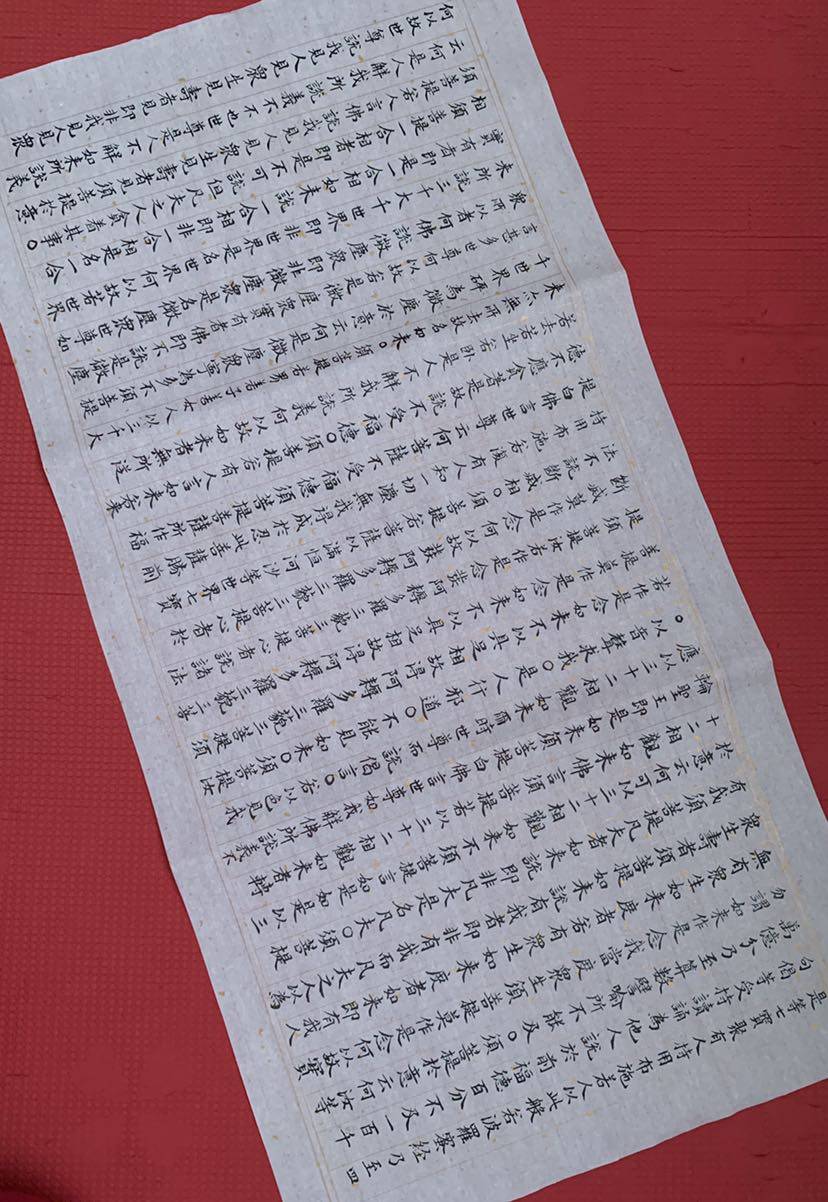 是等七寶聚有人持用布施若人以此般若波羅蜜經乃至四
句偈等受持讀誦為他人說於前福德百分不及一百千
萬億分乃至算數譬喻所不能及。須菩提於意云何汝等
勿謂如來作是念我當度眾生須菩提莫作是念何以故實
無有眾生如來度者若有眾生如來度者如來即有我人
眾生壽者須菩提如來說有我者即非有我而凡夫之人以為
有我須菩提凡夫者如來說即非凡夫是名凡夫。須菩提
於意云何可以三十二相觀如來不須菩提言如是如是以三
十二相觀如來佛言須菩提若以三十二相觀如來者轉
輪聖王即是如來須菩提白佛言世尊如我解佛所說義不
應以三十二相觀如來爾時世尊而說偈言。若以色見我
。以音聲求我。是人行邪道。不能見如來。須菩提汝
若作是念如來不以具足相故得阿耨多羅三藐三菩提須
菩提莫作是念如來不以具足相故得阿耨多羅三藐三菩
提須菩提汝若作是念發阿耨多羅三藐三菩提心者說諸法
斷滅莫作是念何以故發阿耨多羅三藐三菩提心者於
法不說斷滅相。須菩提若菩薩以滿恒河沙等世界七寶
持用布施若復有人知一切法無我得成於忍此菩薩勝前
提白佛言世尊云何菩薩不受福德須菩提菩薩所作福
德不應貪著是故說不受福德。須菩提若有人言如來若來
若去若坐若臥是人不解我所說義何以故如來者無所從
來亦無所去故名如來。須菩提若善男子善女人以三千大
千世界碎為微塵於意云何是微塵眾寧為多不須菩提
言甚多世尊何以故若是微塵眾實有者佛即不說是微塵
眾所以者何佛說微塵眾即非微塵眾是名微塵眾世尊如
來所說三千大千世界即非世界是名世界何以故若世界
實有者即是一合相如來說一合相即非一合相是名一合
相須菩提一合相者即是不可說但凡夫之人貪著其事。
須菩提若人言佛說我見人見眾生見壽者見須菩提於意
云何是人解我所說義不不也世尊是人不解如來所說義
何以故世尊說我見人見眾生見壽者見即非我見人見眾